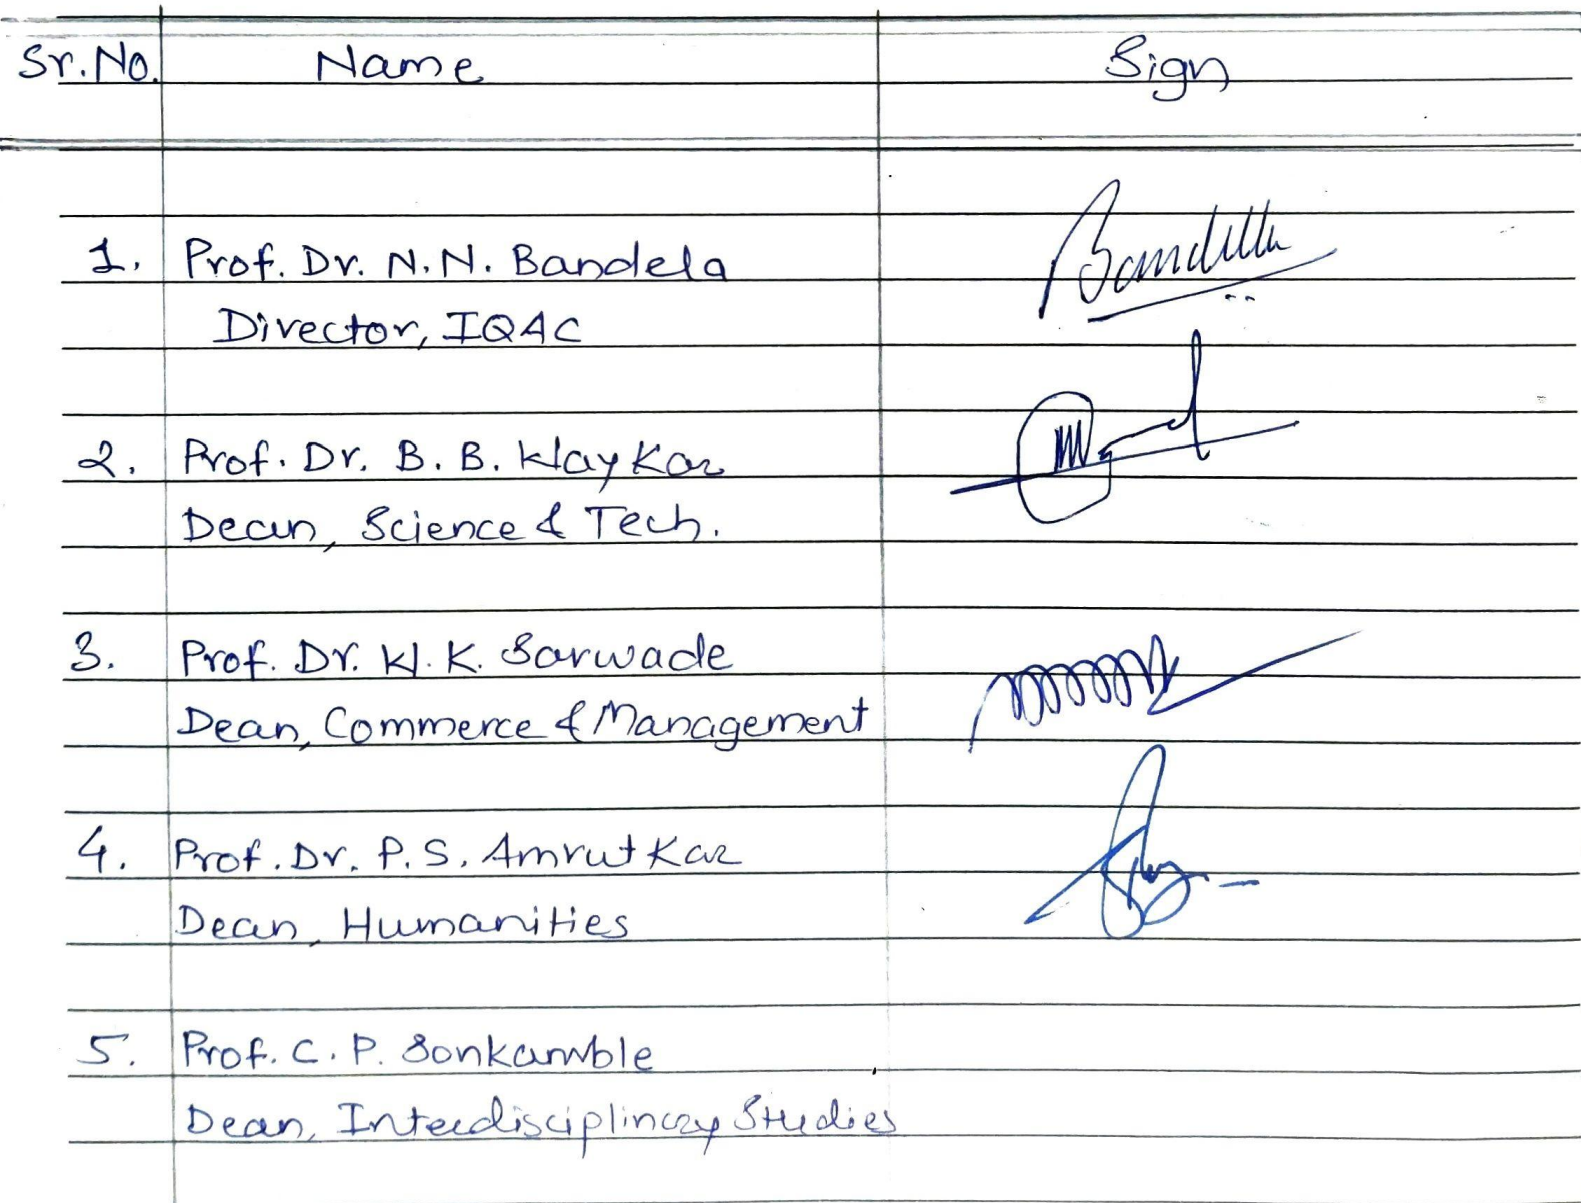 Sr.No. Name Sign
1. Prof. Dr. N.N. Bandela Bandela
Director, IQAC
2. Prof. Dr. B. B. WayKar
Dean, Science & Tech.
3. Prof. Dr. W. K. Sarwade
Dean, Commerce & Management
4. Prof. Dr. P. S. AmrutKar
Dean, Humanities
5. Prof. C. P. Sonkamble
Dean, Interdisciplinary Studies